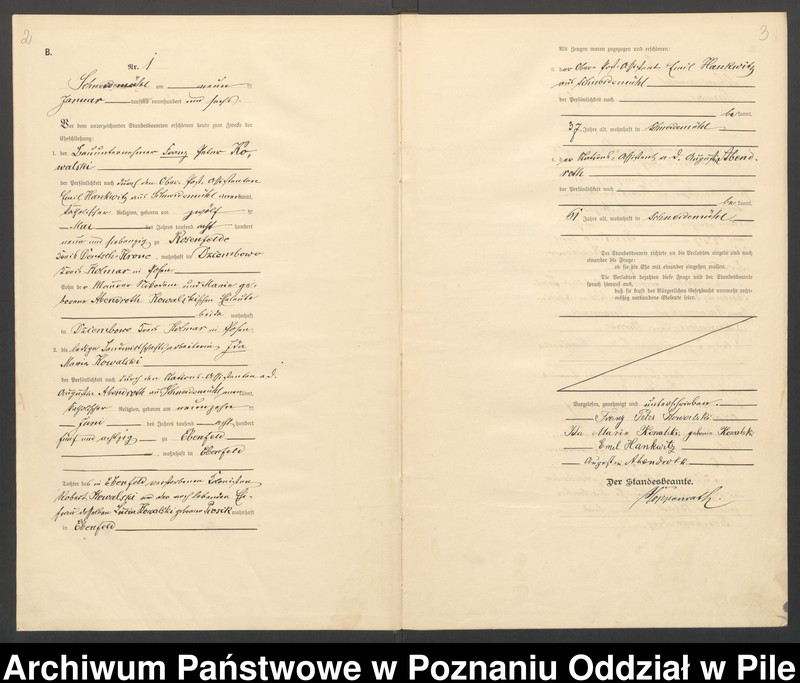 2
B.
Nr. 1
Schneidemühl am neun ten
Januar tausend neunhundert und sechs.
Vor dem unterzeichneten Standesbeamten erschienen heute zum Zwecke der
Eheschließung:
1. der Bauunternehmer Franz Peter Ko-
walski
der Persönlichkeit nach durch den Ober-Post-Assistenten
Emil Hankwitz aus Schneidemühl anerkannt,
katholischer Religion, geboren am zwölf ten
Mai des Jahres tausend acht hundert
neun und siebenzig zu Rosenfelde
Kreis Deutsch-Krone, wohnhaft in Dziembowo
Kreis Kolmar in Posen
Sohn der Maurer Nikodem und Maria ge-
borene Abendroth Kowalskischen Eheleute
beide wohnhaft
in Dziembowo Kreis Kolmar in Posen.
2. die ledige Landwirthschaftsarbeiterin Ida
Maria Kowalski
der Persönlichkeit nach durch den Stations-Assistenten a. D.
Augustin Abendroth aus Schneidemühl anerkannt,
katholischer Religion, geboren am neunzehn ten
Juni des Jahres tausend acht hundert
fünf und achtzig zu Ebenfeld
, wohnhaft in Ebenfeld
Tochter des in Ebenfeld verstorbenen Eigentümers
Robert Kowalski und der noch lebenden Ehe-
frau desselben Kowalski geborene wohnhaft
in Ebenfeld
3
Als Zeugen waren zugezogen und erschienen:
3. der Ober-Post-Assistent Emil Hankwitz
aus Schneidemühl
der Persönlichkeit nach
be kannt,
37 Jahre alt, wohnhaft in Schneidemühl
4. der Stations-Assistent a. D. Augustin Abend-
roth
der Persönlichkeit nach
be kannt,
61 Jahre alt, wohnhaft in Schneidemühl
Der Standesbeamte richtete an die Verlobten einzeln und nach
einander die Frage:
ob sie die Ehe mit einander eingehen wollen.
Die Verlobten bejahten diese Frage und der Standesbeamte
sprach hierauf aus,
daß sie kraft des Bürgerlichen Gesetzbuchs nunmehr recht-
mäßig verbundene Eheleute seien.
Vorgelesen, genehmigt und unterschrieben.
Franz Peter Kowalski
Ida Maria Kowalski, geborene Kowalski
Emil Hankwitz
Augustin Abendroth
Der Standesbeamte.
Archiwum Państwowe w Poznaniu Oddział w Pile